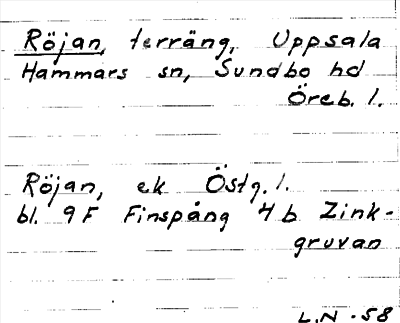 Röjan, terräng, Uppsala
Hammars sn, Sundbo hd
Öreb. l.
Röjan, ek Östg. l.
bl. 9 F Finspång 4 b Zink-
gruvan
L.N -58